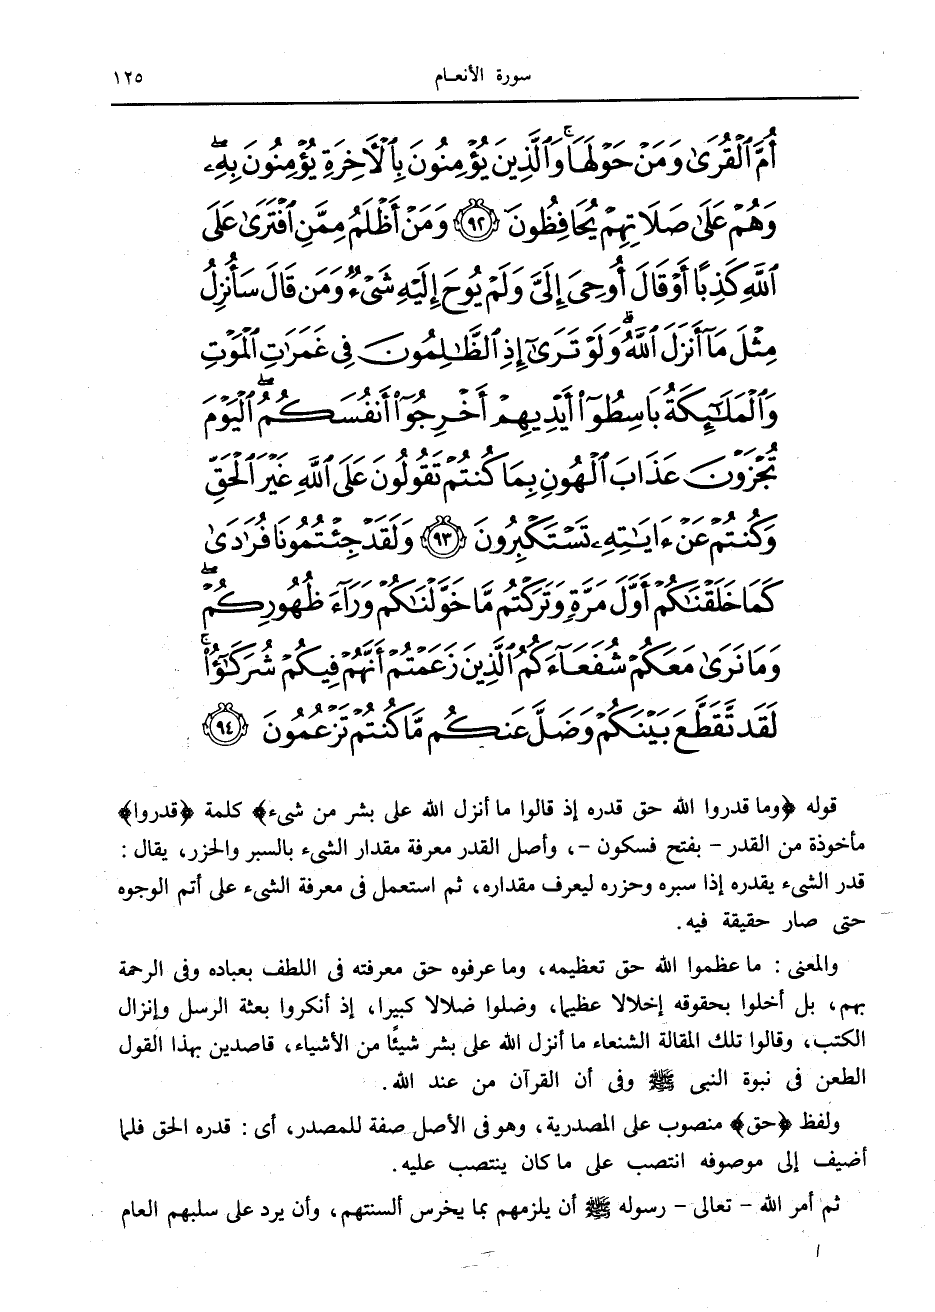 سورة الأنعـام ١٢٥
أُمَّ ٱلْقُرَىٰ وَمَنْ حَوْلَهَا ۚ وَٱلَّذِينَ يُؤْمِنُونَ بِٱلْـَٔاخِرَةِ يُؤْمِنُونَ بِهِۦ ۖ
وَهُمْ عَلَىٰ صَلَاتِهِمْ يُحَافِظُونَ ﴿٩٢﴾ وَمَنْ أَظْلَمُ مِمَّنِ ٱفْتَرَىٰ عَلَى
ٱللَّهِ كَذِبًا أَوْ قَالَ أُوحِىَ إِلَىَّ وَلَمْ يُوحَ إِلَيْهِ شَىْءٌ وَمَن قَالَ سَأُنزِلُ
مِثْلَ مَآ أَنزَلَ ٱللَّهُ ۗ وَلَوْ تَرَىٰٓ إِذِ ٱلظَّٰلِمُونَ فِى غَمَرَٰتِ ٱلْمَوْتِ
وَٱلْمَلَٰٓئِكَةُ بَاسِطُوٓا۟ أَيْدِيهِمْ أَخْرِجُوٓا۟ أَنفُسَكُمُ ۖ ٱلْيَوْمَ
تُجْزَوْنَ عَذَابَ ٱلْهُونِ بِمَا كُنتُمْ تَقُولُونَ عَلَى ٱللَّهِ غَيْرَ ٱلْحَقِّ
وَكُنتُمْ عَنْ ءَايَٰتِهِۦ تَسْتَكْبِرُونَ ﴿٩٣﴾ وَلَقَدْ جِئْتُمُونَا فُرَٰدَىٰ
كَمَا خَلَقْنَٰكُمْ أَوَّلَ مَرَّةٍ وَتَرَكْتُم مَّا خَوَّلْنَٰكُمْ وَرَآءَ ظُهُورِكُمْ ۖ
وَمَا نَرَىٰ مَعَكُمْ شُفَعَآءَكُمُ ٱلَّذِينَ زَعَمْتُمْ أَنَّهُمْ فِيكُمْ شُرَكَٰٓؤُا۟ ۚ
لَقَد تَّقَطَّعَ بَيْنَكُمْ وَضَلَّ عَنكُم مَّا كُنتُمْ تَزْعُمُونَ ﴿٩٤﴾
قوله ﴿وما قدروا الله حق قدره إذ قالوا ما أنزل الله على بشر من شىء﴾ كلمة ﴿قدروا﴾
مأخوذة من القدر - بفتح فسكون -، وأصل القدر معرفة مقدار الشىء بالسبر والحزر، يقال :
قدر الشىء يقدره إذا سبره وحزره ليعرف مقداره، ثم استعمل فى معرفة الشىء على أتم الوجوه
حتى صار حقيقة فيه.
والمعنى : ما عظموا الله حق تعظيمه، وما عرفوه حق معرفته فى اللطف بعباده وفى الرحمة
بهم، بل أخلوا بحقوقه إخلالا عظيما، وضلوا ضلالا كبيرا، إذ أنكروا بعثة الرسل وإنزال
الكتب، وقالوا تلك المقالة الشنعاء ما أنزل الله على بشر شيئًا من الأشياء، قاصدين بهذا القول
الطعن فى نبوة النبى ﷺ وفى أن القرآن من عند الله.
ولفظ ﴿حق﴾ منصوب على المصدرية، وهو فى الأصل صفة للمصدر، أى : قدره الحق فلما
أضيف إلى موصوفه انتصب على ما كان ينتصب عليه.
ثم أمر الله - تعالى - رسوله ﷺ أن يلزمهم بما يخرس ألسنتهم، وأن يرد على سلبهم العام